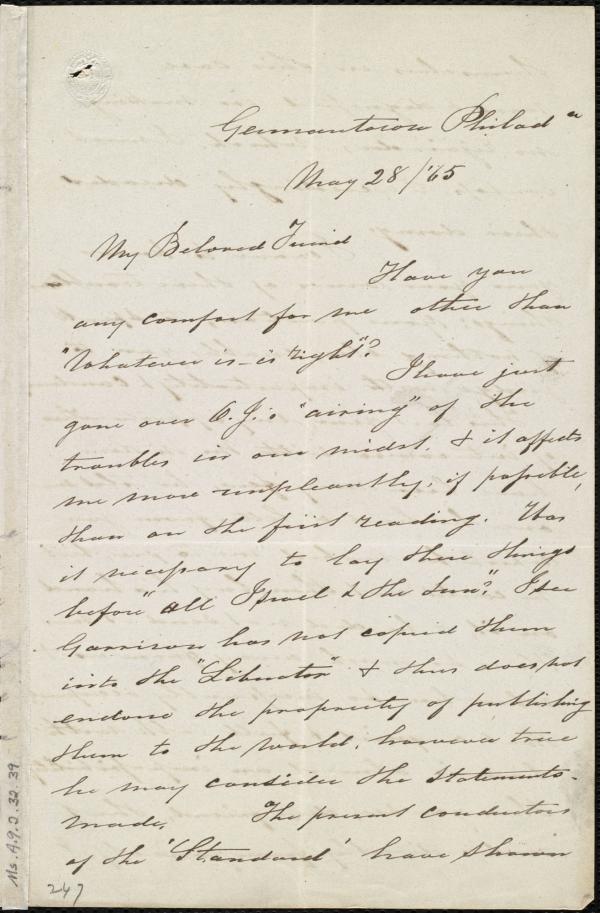 Germantown Philad a
May 28/'65
My Beloved Friend
Have you
any comfort for me other than
"Whatever is - is right"?
I have just
gone over O. J.'s "airing" of the
troubles in our midst, & it affects
me more unpleasantly, if possible,
than on the first reading. Was
it necessary to lay these things
before "all Israel & the Sun"? I see
Garrison has not copied them
into the "Liberator" & thus does not
endorse the propriety of publishing
them to the world, however true
he may consider the statements
made. The present conductors
of the 'Standard' have shown
247
Ms. A.9.2.32.39